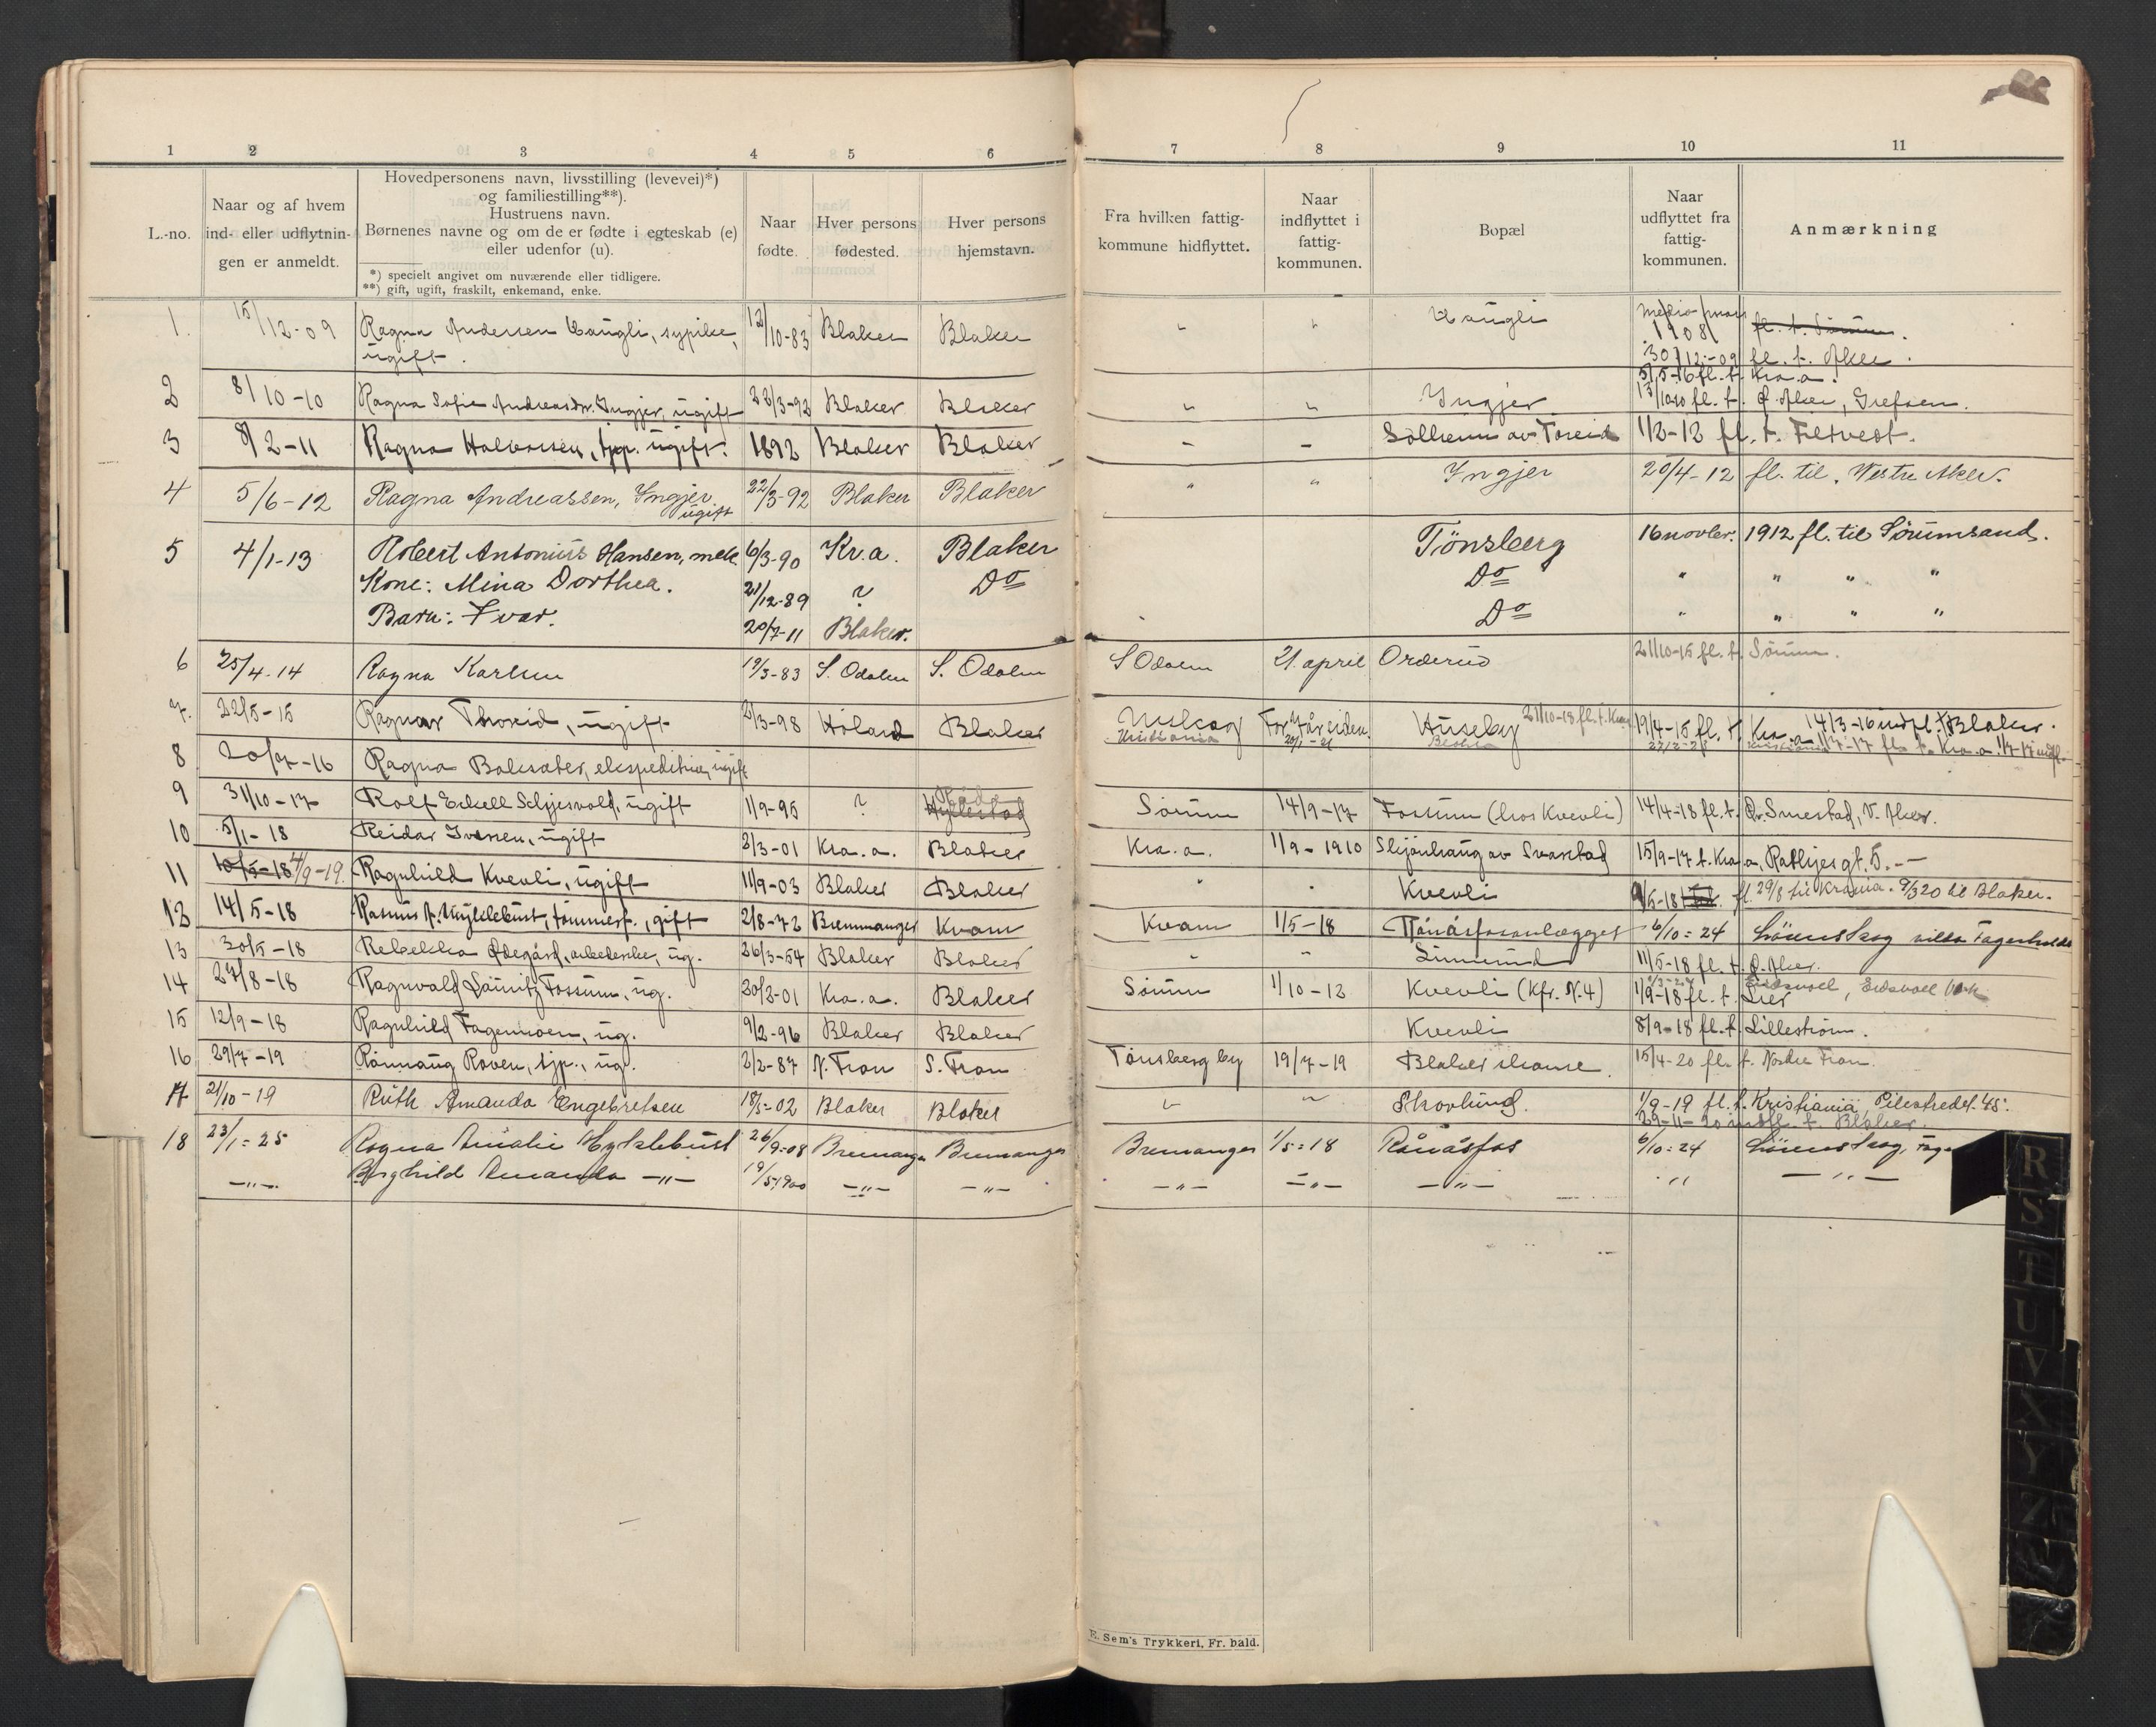 1 2 3 4 5 6 7 8 9 10 11
L.-no.
Naar og af hvem
ind- eller udflytnin-
gen er anmeldt.
Hovedpersonens navn, livsstilling (levevei)*)
og familiestilling**).
Hustruens navn.
Børnenes navne og om de er fødte i egteskab (e)
eller udenfor (u).
*) specielt angivet om nuværende eller tidligere.
**) gift, ugift, fraskilt, enkemand, enke.
Naar
fødte.
Hver persons
fødested.
Hver persons
hjemstavn.
Fra hvilken fattig-
kommune hidflyttet.
Naar
indflyttet i
fattig-
kommunen.
Bopæl
Naar
udflyttet fra
fattig-
kommunen.
Anmærkning
1. 15/12-09 Ragna Andersen Haugli, sypike, 12/10-83 Blaker Blaker " " Haugli 1908 fl. t. Sørum.
ugift. 30/12-09 fl. t. Aker.
5/5-16 fl. t. Kra.a.
2 8/10-10 Ragna Sofie Andreasdr. Ingjer, ugift 22/3-92 Blaker Blaker " " Ingjer fl. t. Ø. Aker, Grefsen.
3 8/2-11 Ragna Halvorsen, tjp. ugift. 1892 Blaker Blaker - - Solheim av Toreid 1/2-12 fl. t. Filtvedt.
4 5/6-12 Ragna Andreassen, Ingjer 22/3-92 Blaker Blaker " " Ingjer 20/4-12 fl. til Vestre Aker.
ugift
5 4/1-13 Robert Antonius Hansen, mek. 6/3-90 Kr.a. Blaker Tönsberg 16 novbr. 1912 fl. til Sørumsand.
Kone: Mina Dorthea. 21/12-89 ? Do Do " " " "
Barn: Ivar. 20/7-11 Blaker. Do " " " "
6 25/4-14 Ragna Karlsen 19/3-83 S. Odalen S. Odalen S Odalen 21. april Orderud 21/10-15 fl. t. Sørum.
7. 22/5-15 Ragnar Thoreid, ugift 2/3-98 Høland Blaker Urskog For år siden. Huseby 21/10-18 fl. t. 19/4-15 fl. t. Kra.a 14/3-16 indfl. t. Blaker.
Kristiania 20/1-21 Blaker 27/2-25 Kristiania 1/7-17 fl. t. Kra.a.
8 20/7-16 Ragna Bolesæter, ekspeditrice, ugift
9 31/10-17 Rolf Eckell Schjesvold, ugift 1/9-95 ? Sørum 14/9-17 Fossum (hos Kvevli) 14/4-18 fl. t. Smestad, V. Aker.
10 5/1-18 Reidar Iversen, ugift 2/3-01 Kra.a. Blaker Kra.a. 1/9-1910 Skjönhaug av Svarstad 15/9-17 t. Kra.a, Rathjes gt. 5. --
11 10/5-18 4/9-19. Ragnhild Kvevli, ugift 11/9-03 Blaker Blaker " " Kvevli 9/5-18 fl. 29/8 til Krania. 9/3 20 til Blaker.
12 14/5-18 Rasmus A. Myklebust, tømmerf., gift 2/8-72 Bremmanger Kvam Kvam 1/5-18 Rånåsfosanlægget 6/10=24 Lörenskog villa Fagerholdt
13 30/5-18 Rebekka Ødegård, arbeiderske, ug. 26/3-54 Blaker Blaker " " Linnerud 11/5-18 fl. t. Ø. Aker.
14 27/8-18 Ragnvald Lauritz Fossum, ug. 20/2-01 Kra.a. Blaker Sørum 1/10-12 Kvevli (Kfr. N. 4) 1/9-18 fl. t. Lier Eidsvoll, Eidsvoll Verk
15 12/9-18 Ragnhild Fagermoen, ug. 9/2-96 Blaker Blaker Kvevli 8/9-18 fl. t. Lilleström.
16 29/7-19 Rönnaug Roven, tjp., ug. 2/2-87 N. Fron S. Fron Tönsberg by 19/7-19 Blaker skanse. 15/4-20 fl. t. Nordre Fron
17 21/10-19 Ruth Amanda Engebretsen 18/5-02 Blaker Blaker " " Skovlund. 1/9-19 fl. t. Kristiania, Pilestredet 45.
29-11-20 indfl. t. Blaker.
18 23/1=25 Ragna Amalie Myklebust 26/9=08 Bremanger Bremanger Bremanger 1/5=18 Rånåsfos 6/10=24 Lörenskog,
-"- Borghild Amanda -"- 19/5-1900 -"- -"- -"- -"- -"- " -"-
E. Sem's Trykkeri, Fr.hald.
R
S
T
U
V
X
Y
Z